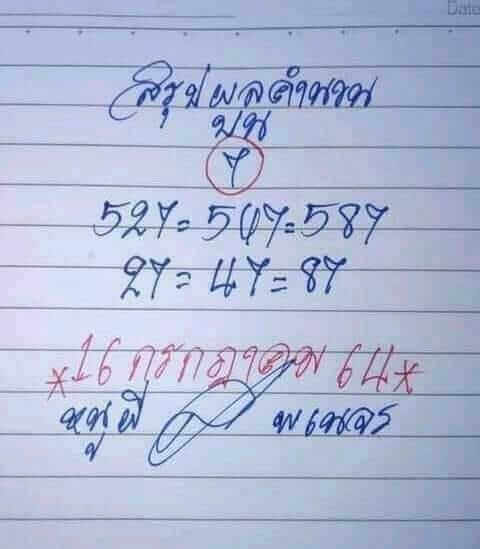 Date
สรุปผลคำนวน
บน
7
527=547=587
27=47=87
*16 กรกฎาคม 64*
หนูผี พเนจร